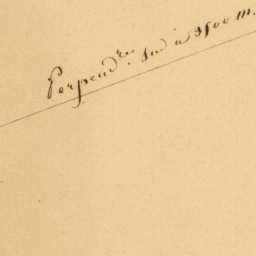 Perpend.re Sud à 3500 m.